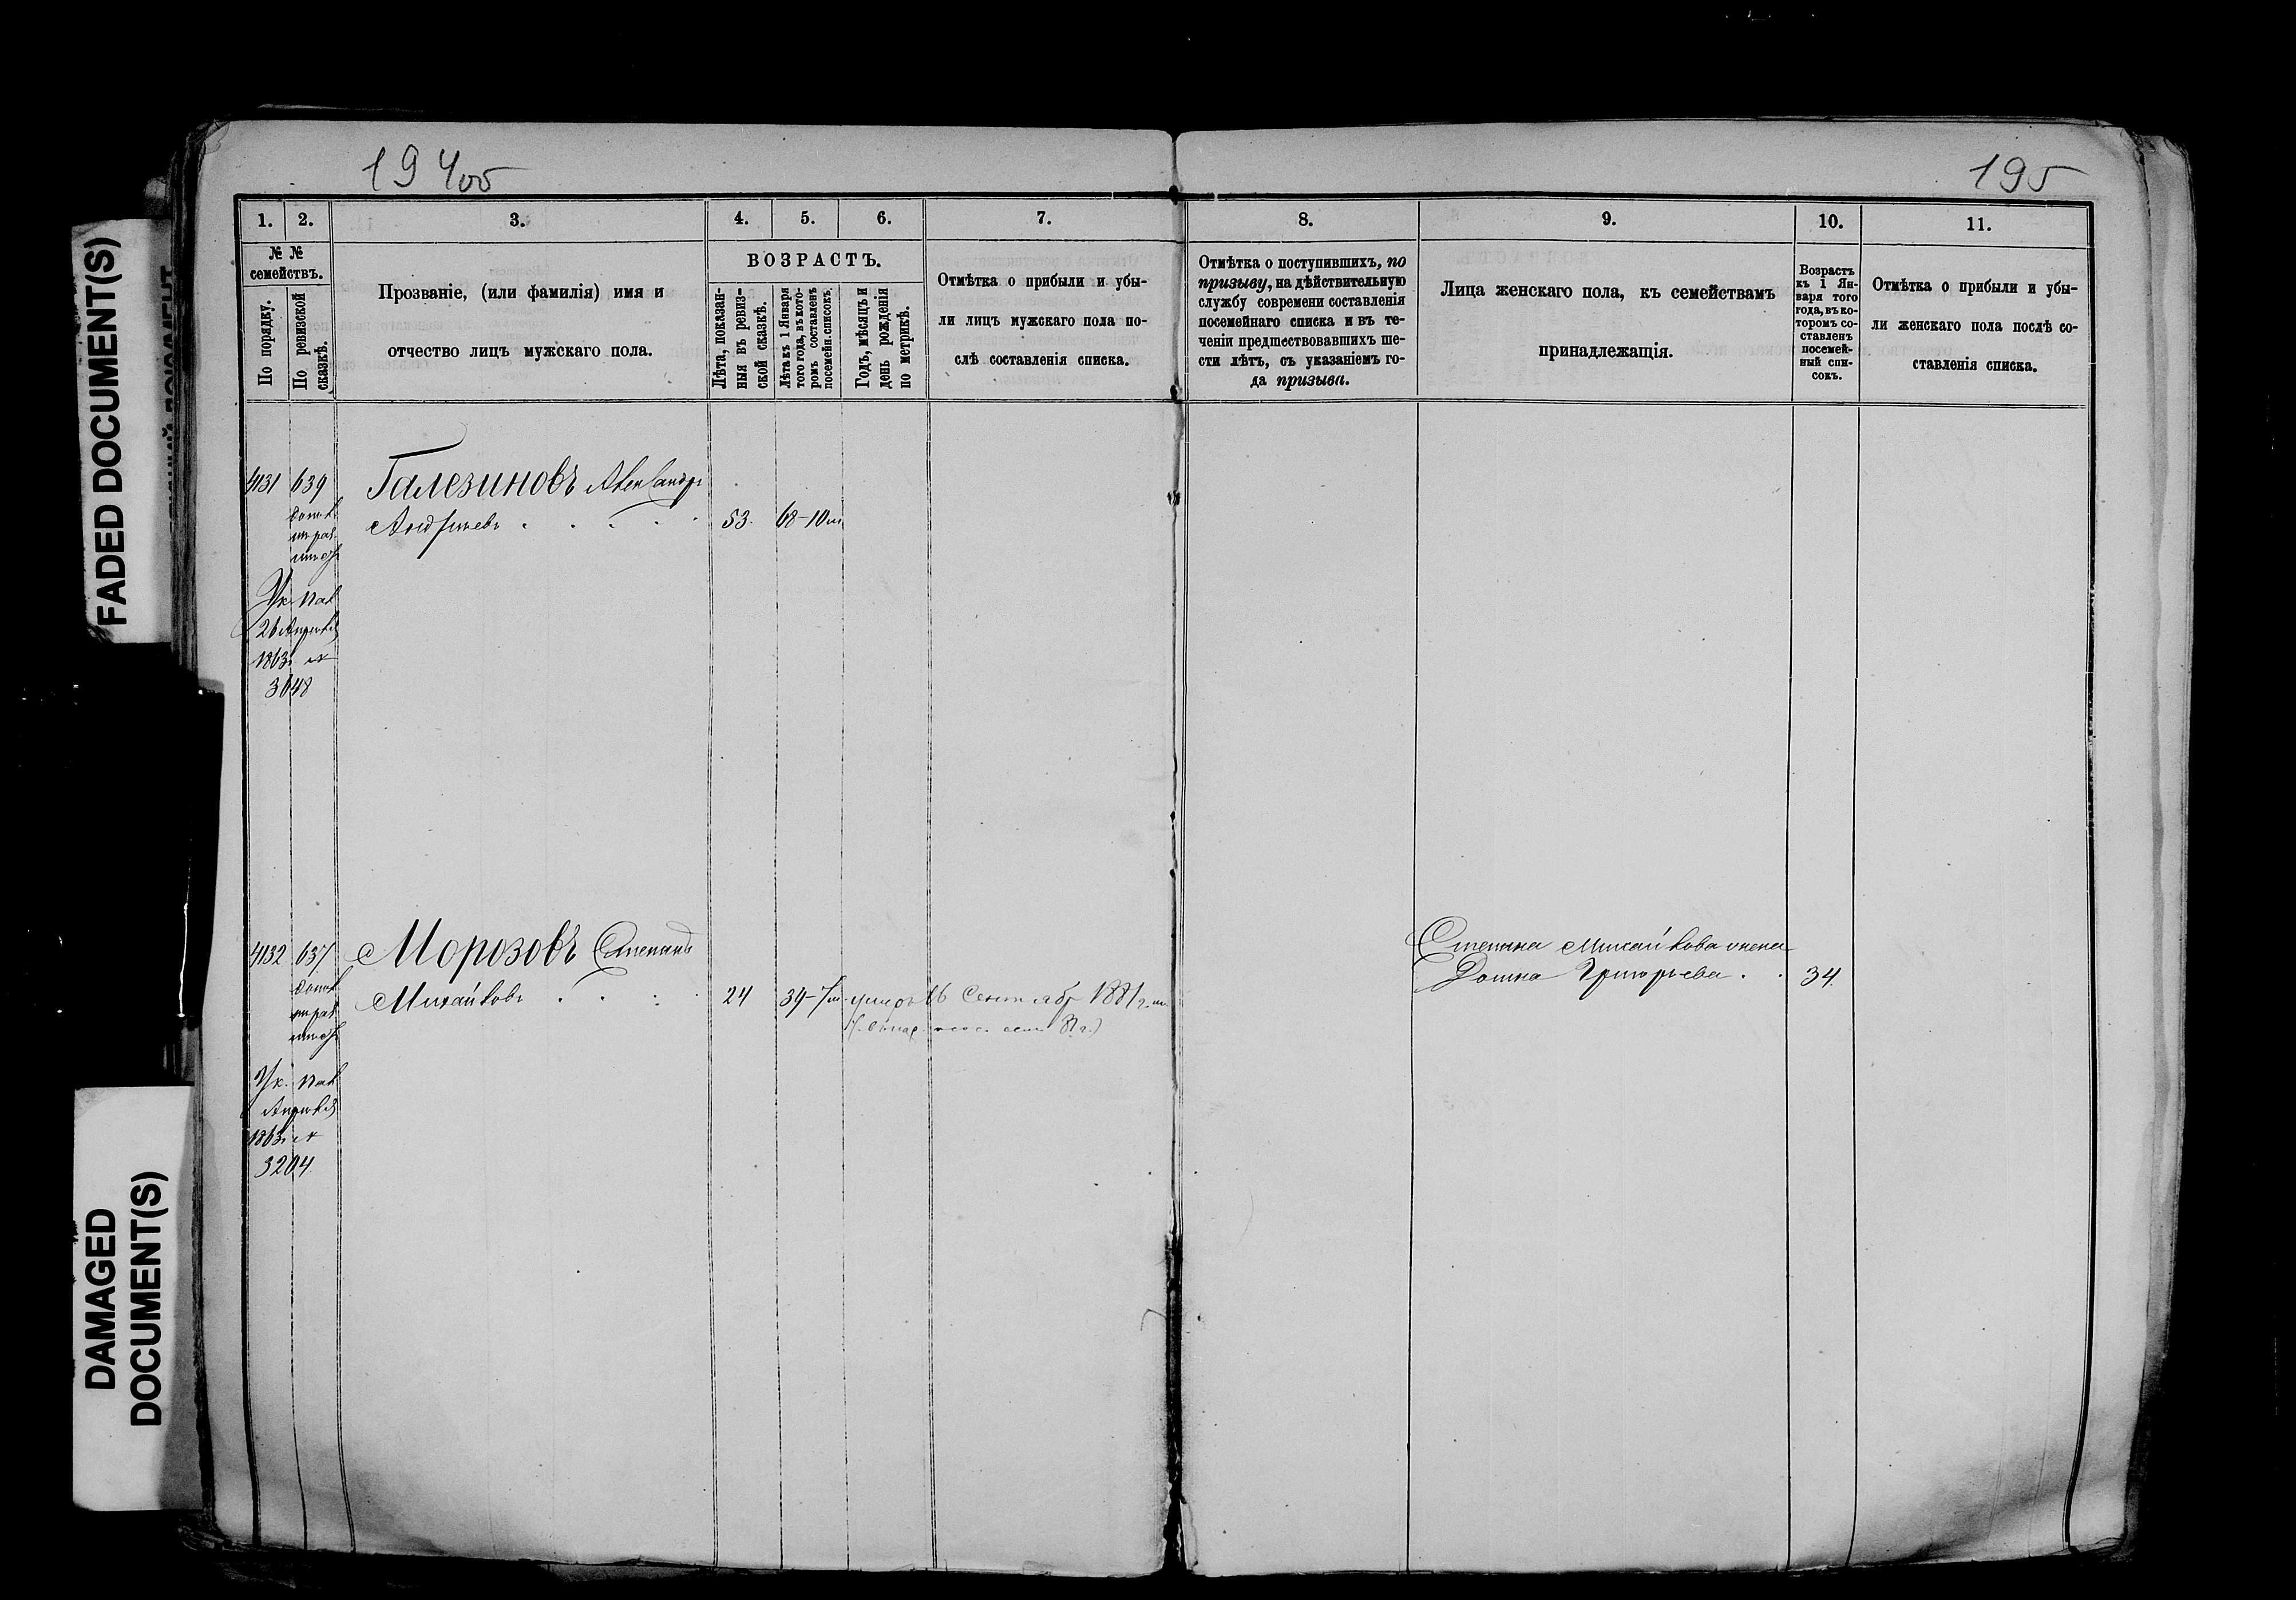 FADED DOCUMENT(S)
DAMAGED
DOCUMENT(S)
194об
195
1.
2.
3.
4.
5.
6.
7.
8.
9.
10.
11.
№ №
семействъ.
По порядку.
По ревизской
сказкѣ.
Прозваніе, (или фамилія) имя и
отчество лицъ мужскаго пола.
ВОЗРАСТЪ.
Лѣта, показан-
ныя въ ревиз-
ской сказкѣ.
Лѣта къ 1 Января
того года, въ кото-
ромъ составленъ
посемейн. списокъ.
Годъ, мѣсяцъ и
день рожденія
по метрикѣ.
Отмѣтка о прибыли и убы-
ли лицъ мужскаго пола по-
слѣ составленія списка.
Отмѣтка о поступившихъ, по
призыву, на дѣйствительную
службу современи составленія
посемейнаго списка и въ те-
ченіи предшествовавшихъ ше-
сти лѣтъ, съ указаніемъ го-
да призыва.
Лица женскаго пола, къ семействамъ
принадлежащія.
Возрастъ
къ 1 Ян-
варя того
года, въ ко-
торомъ со-
ставленъ
посемей-
ный спи-
сокъ.
Отмѣтка о прибыли и убы-
ли женскаго пола послѣ со-
ставленія списка.
4131 639 Галезиновъ Александръ
Андреевъ 53. 68-10м
Ук.
26 Апрѣля
1863г. №
3648
4132 637 Морозовъ Степанъ
Михайловъ 24 34-7м умеръ 16 Сентябр 1881г.
Степана Михайлова жена
Домна Григорьева 34.
Ук.
Апрѣля
1863г. №
3204.